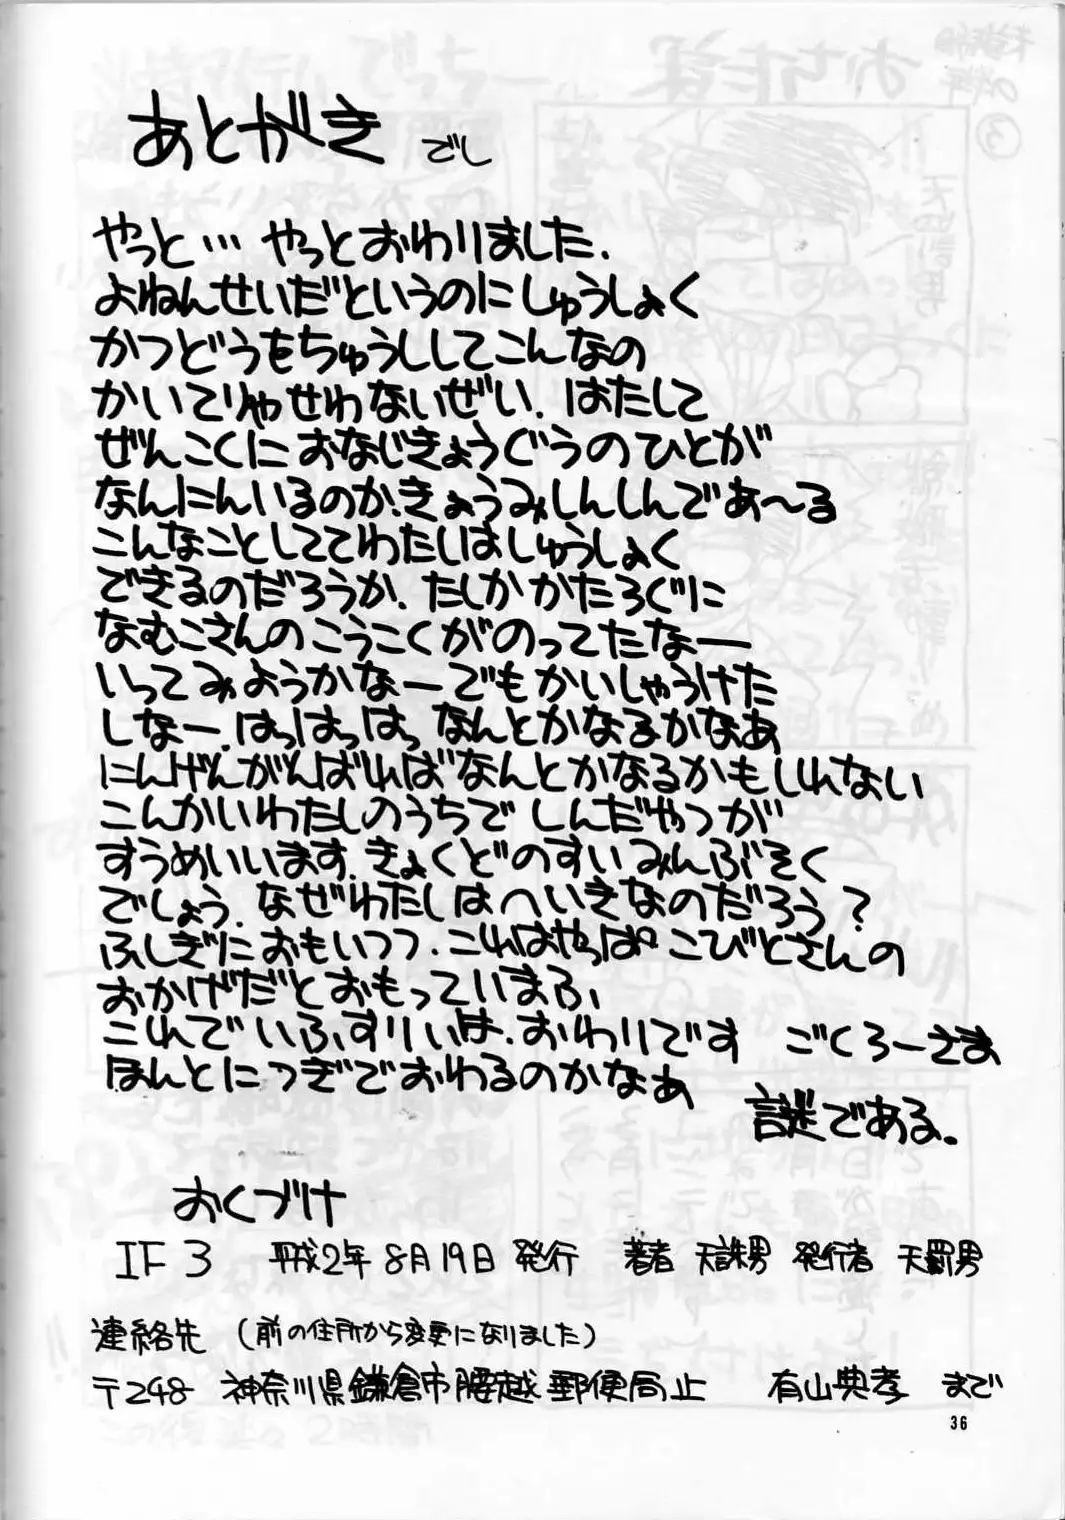 あとがき でし
やっと… やっとおわりました.
よねんせいだというのにしゅうしょく
かつどうをちゅうししてこんなの
かいてりゃせわないぜい. はたして
ぜんこくにおなじきょうぐうのひとが
なんにんいるのか.きょうみしんしんであ〜る
こんなことしててわたしはしゅうしょく
できるのだろうか. たしかかたろぐに
なむこさんのこうこくがのってたなー
いってみようかなーでもかいしゃうけた
しなー.はっはっはっ なんとかなるかなあ
にんげんがんばればなんとかなるかもしれない
こんかいわたしのうちで しんだやつが
すうめいいます.きょくどのすいみんぶそく
でしょう. なぜわたしはへいきなのだろう?
ふしぎにおもいつつ. これはやっぱ こびとさんの
おかげだとおもっていまふ
これでいふすりいは. おわりです ごくろーさま
ほんとにつぎでおわるのかなぁ
謎である.
おくづけ
IF 3 平成2年 8月19日 発行 著者 天誅男 発行者 天罰男
連絡先 (前の住所から変更になりました)
〒248 神奈川県鎌倉市腰越郵便局止 有山典孝 まで
36